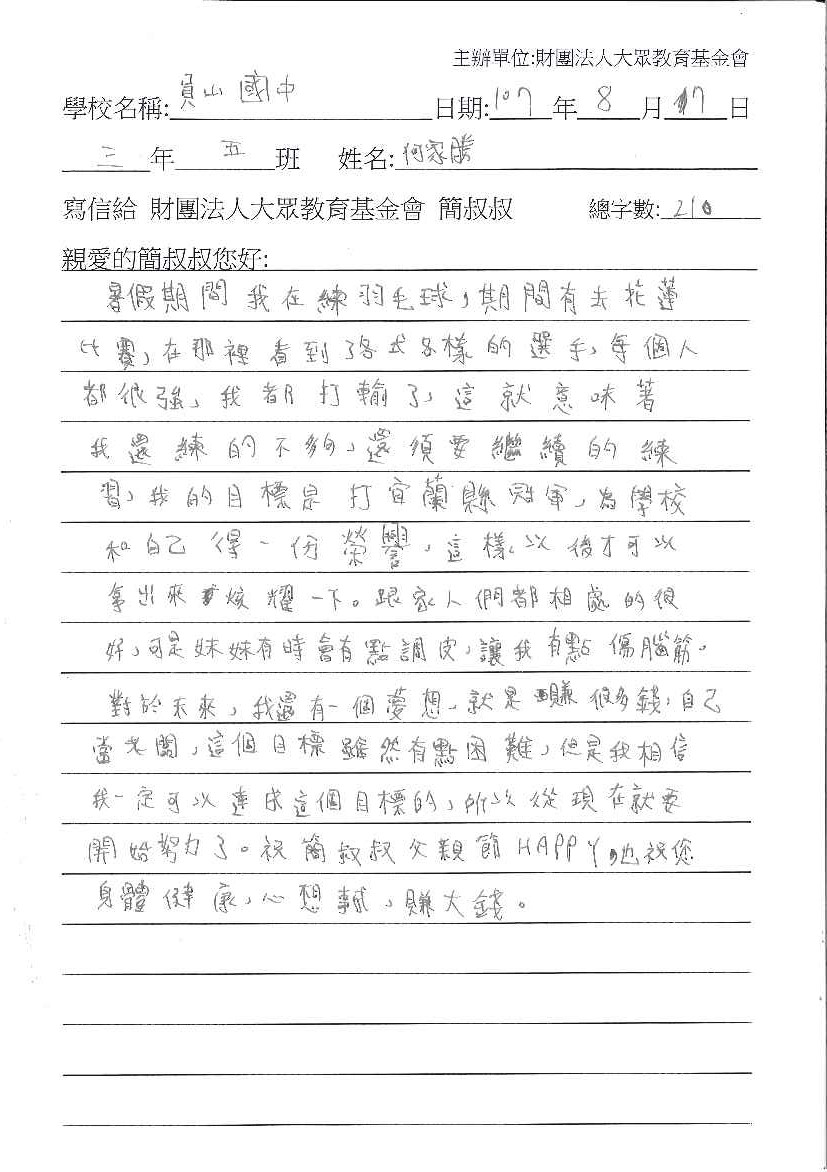 主辦單位:財團法人大眾教育基金會
學校名稱:員山國中 日期:107年8月17日
三年五班 姓名:何家騰
寫信給 財團法人大眾教育基金會 簡叔叔 總字數:210
親愛的簡叔叔您好:
暑假期間我在練羽毛球,期間有去花蓮
比賽,在那裡看到了各式各樣的選手,每個人
都很強,我都打輸了,這就意味著
我還練的不夠,還須要繼續的練
習,我的目標是打宜蘭縣冠軍,為學校
和自己得一份榮譽,這樣以後才可以
拿出來炫耀一下。跟家人們都相處的很
好,可是妹妹有時會有點調皮,讓我有點傷腦筋。
對於未來,我還有一個夢想,就是賺很多錢,自己
當老闆,這個目標雖然有點困難,但是我相信
我一定可以達成這個目標的,所以從現在就要
開始努力了。祝簡叔叔父親節HAPPY,也祝您
身體健康,心想事成,賺大錢。